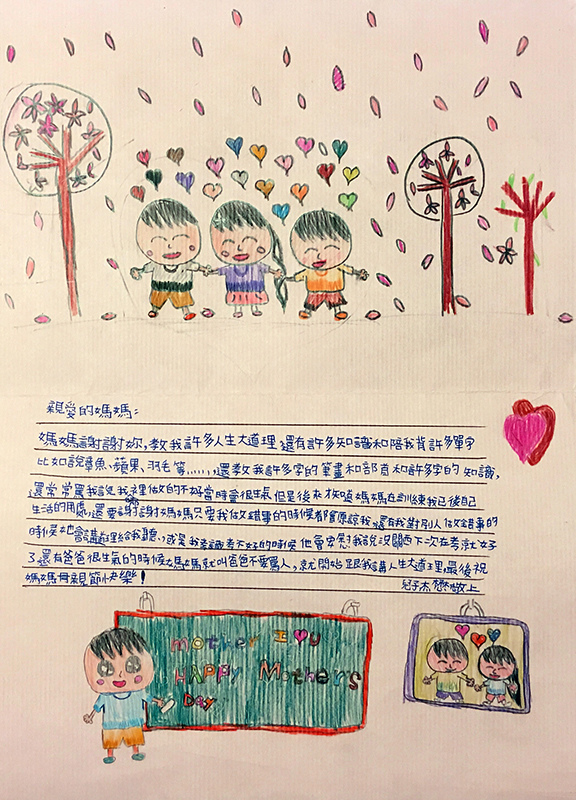 親愛的媽媽：
媽媽謝謝妳，教我許多人生大道理，還有許多知識和陪我背許多單字
比如說章魚、蘋果、羽毛等......，還教我許多字的筆畫和部首和許多字的知識，
還常常罵我說我裡做的不好當時會很生氣但是後來知道媽媽在訓練我已後自己
生活的用處，還要謝謝媽媽只要我做錯事的時候都會原諒我，還有我對別人做錯事的
時候她會講道理給我聽，或是我考試考不好的時候他會安慰我說沒關西下次在考就好
了還有爸爸很生氣的時候媽媽就叫爸爸不要罵人，就開始跟我講人生大道理，最後祝
媽媽母親節快樂！ 兒子 敬上
mother I you
HAPPY Mothers
Day